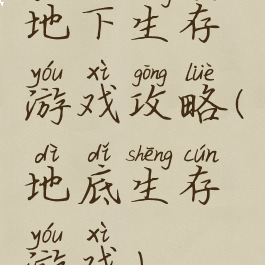 地下生存
yóu xì gōng lüè
游戏攻略(
dì dǐ shēng cún
地底生存
yóu xì
游戏)